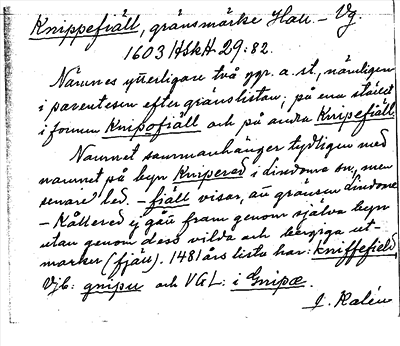 Knippefjäll, gränsmärke Hall. – Vg.
1603 HSkH 29:82.
Nämnes ytterligare två ggr. a. st., nämligen
i parentesen efter gränslistan; på ena stället
i formen Knipofjäll och på andra Knipefjäll.
Namnet sammanhänger tydligen med
namnet på byn Knipered i Lindome sn, men
senare led. -fjäll visar, att gränsen Lindome
– Kållered ej gått fram genom själva byn
utan genom dess vilda och bergiga ut-
marker (fjäll). 1481 års lista har: kniffefield,
Vjb: gnipu och VGL: i Gnipæ.
J. Kalén